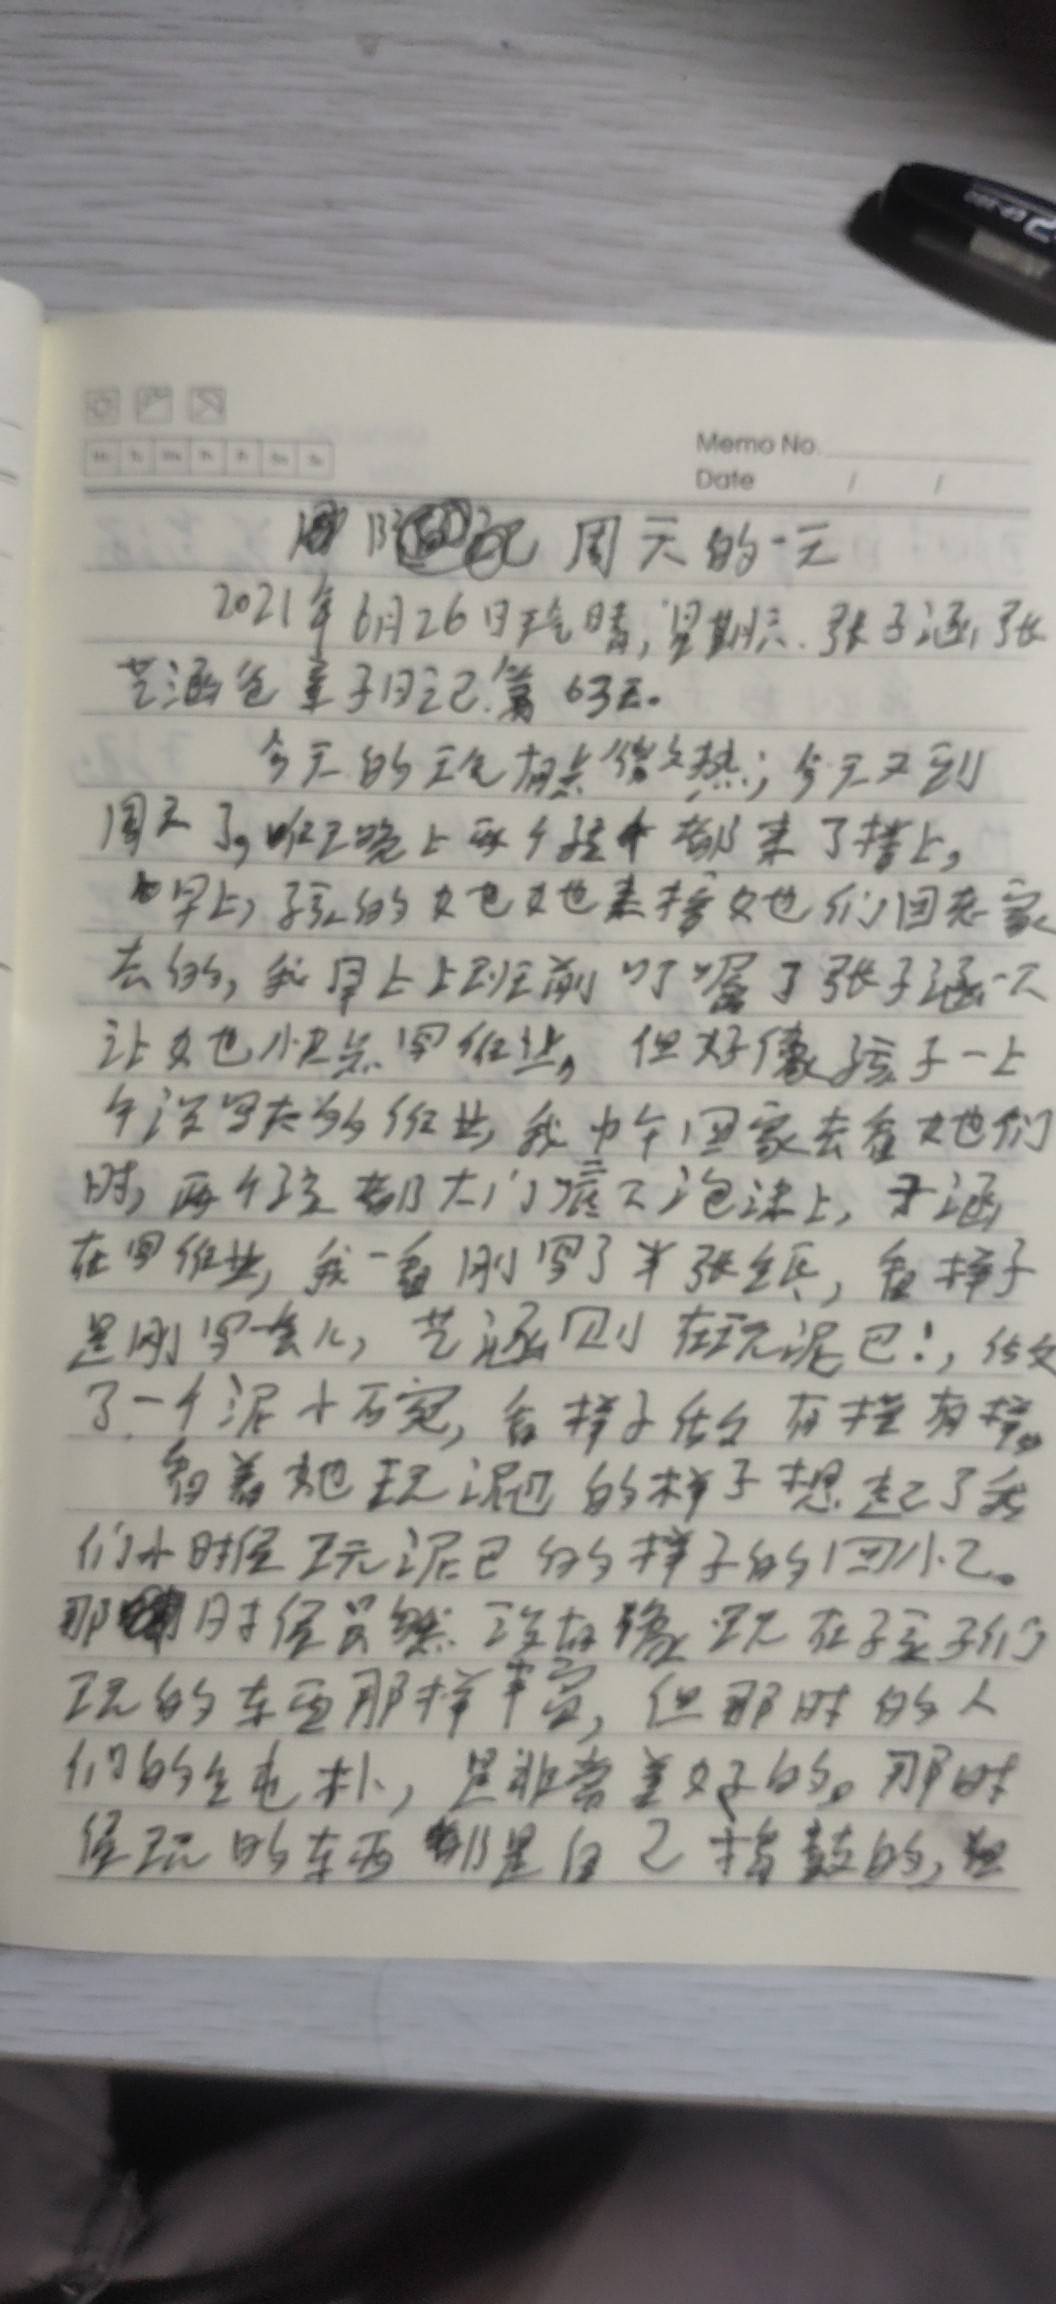 周天的一天
2021年6月26日天气晴,星期六.张子涵,张
艺涵爸亲子日记第63天。
今天的天气有点微热;今天又到
周天了,昨天晚上两个孩子都来了楼上,
早上,孩的她来接她们回老家
去的,我早上上班前叮嘱了张子涵一下
让她快点写作业,但好像孩子一上
午没写太多的作业,我中午回家去看她们
时,两个孩都大门底下泡沫上,子涵
在写作业,我一看刚写了半张纸,看样子
是刚写一会儿,艺涵则在玩泥巴!,做
了一个泥十石宛,看样子做有模有样。
看着她玩泥巴的样子想起了我
们小时候玩泥巴的样子的回忆。
那时候虽然没有像现在孩子们
玩的东西那样丰富,但那时的人
们的纯朴,是非常美好的。那时
候玩的东西都是自己捣鼓的,但
Memo No.
Date / /